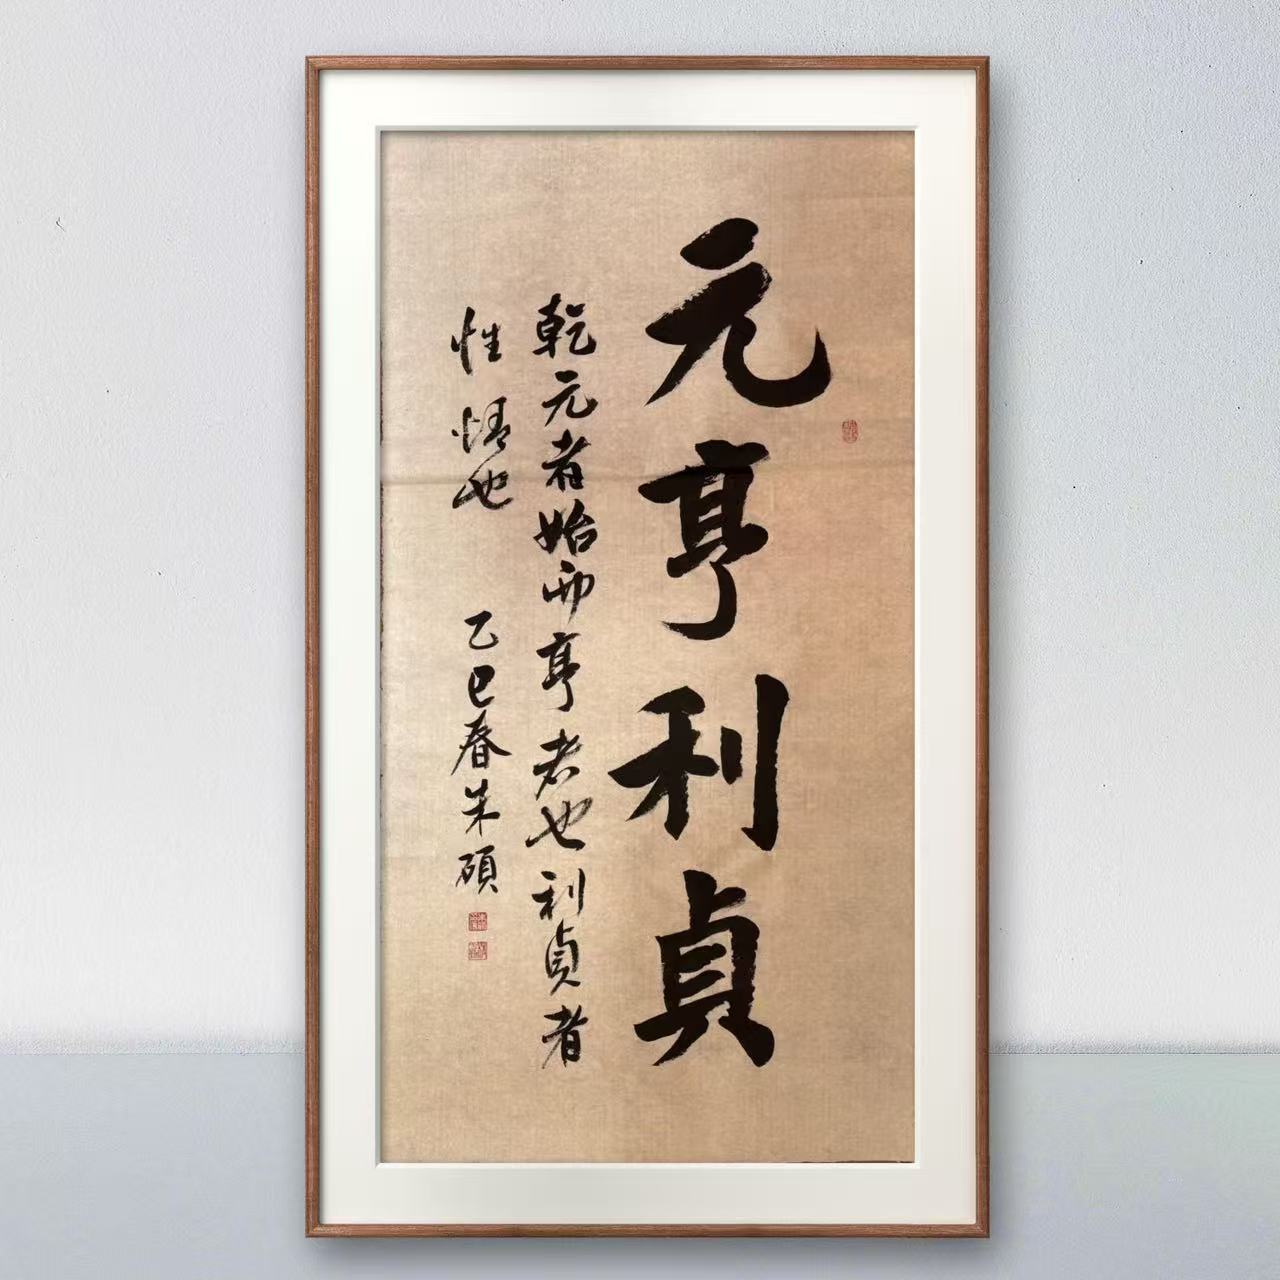 元亨利貞
乾元者始而亨者也利貞者
性情也
乙巳春朱碩